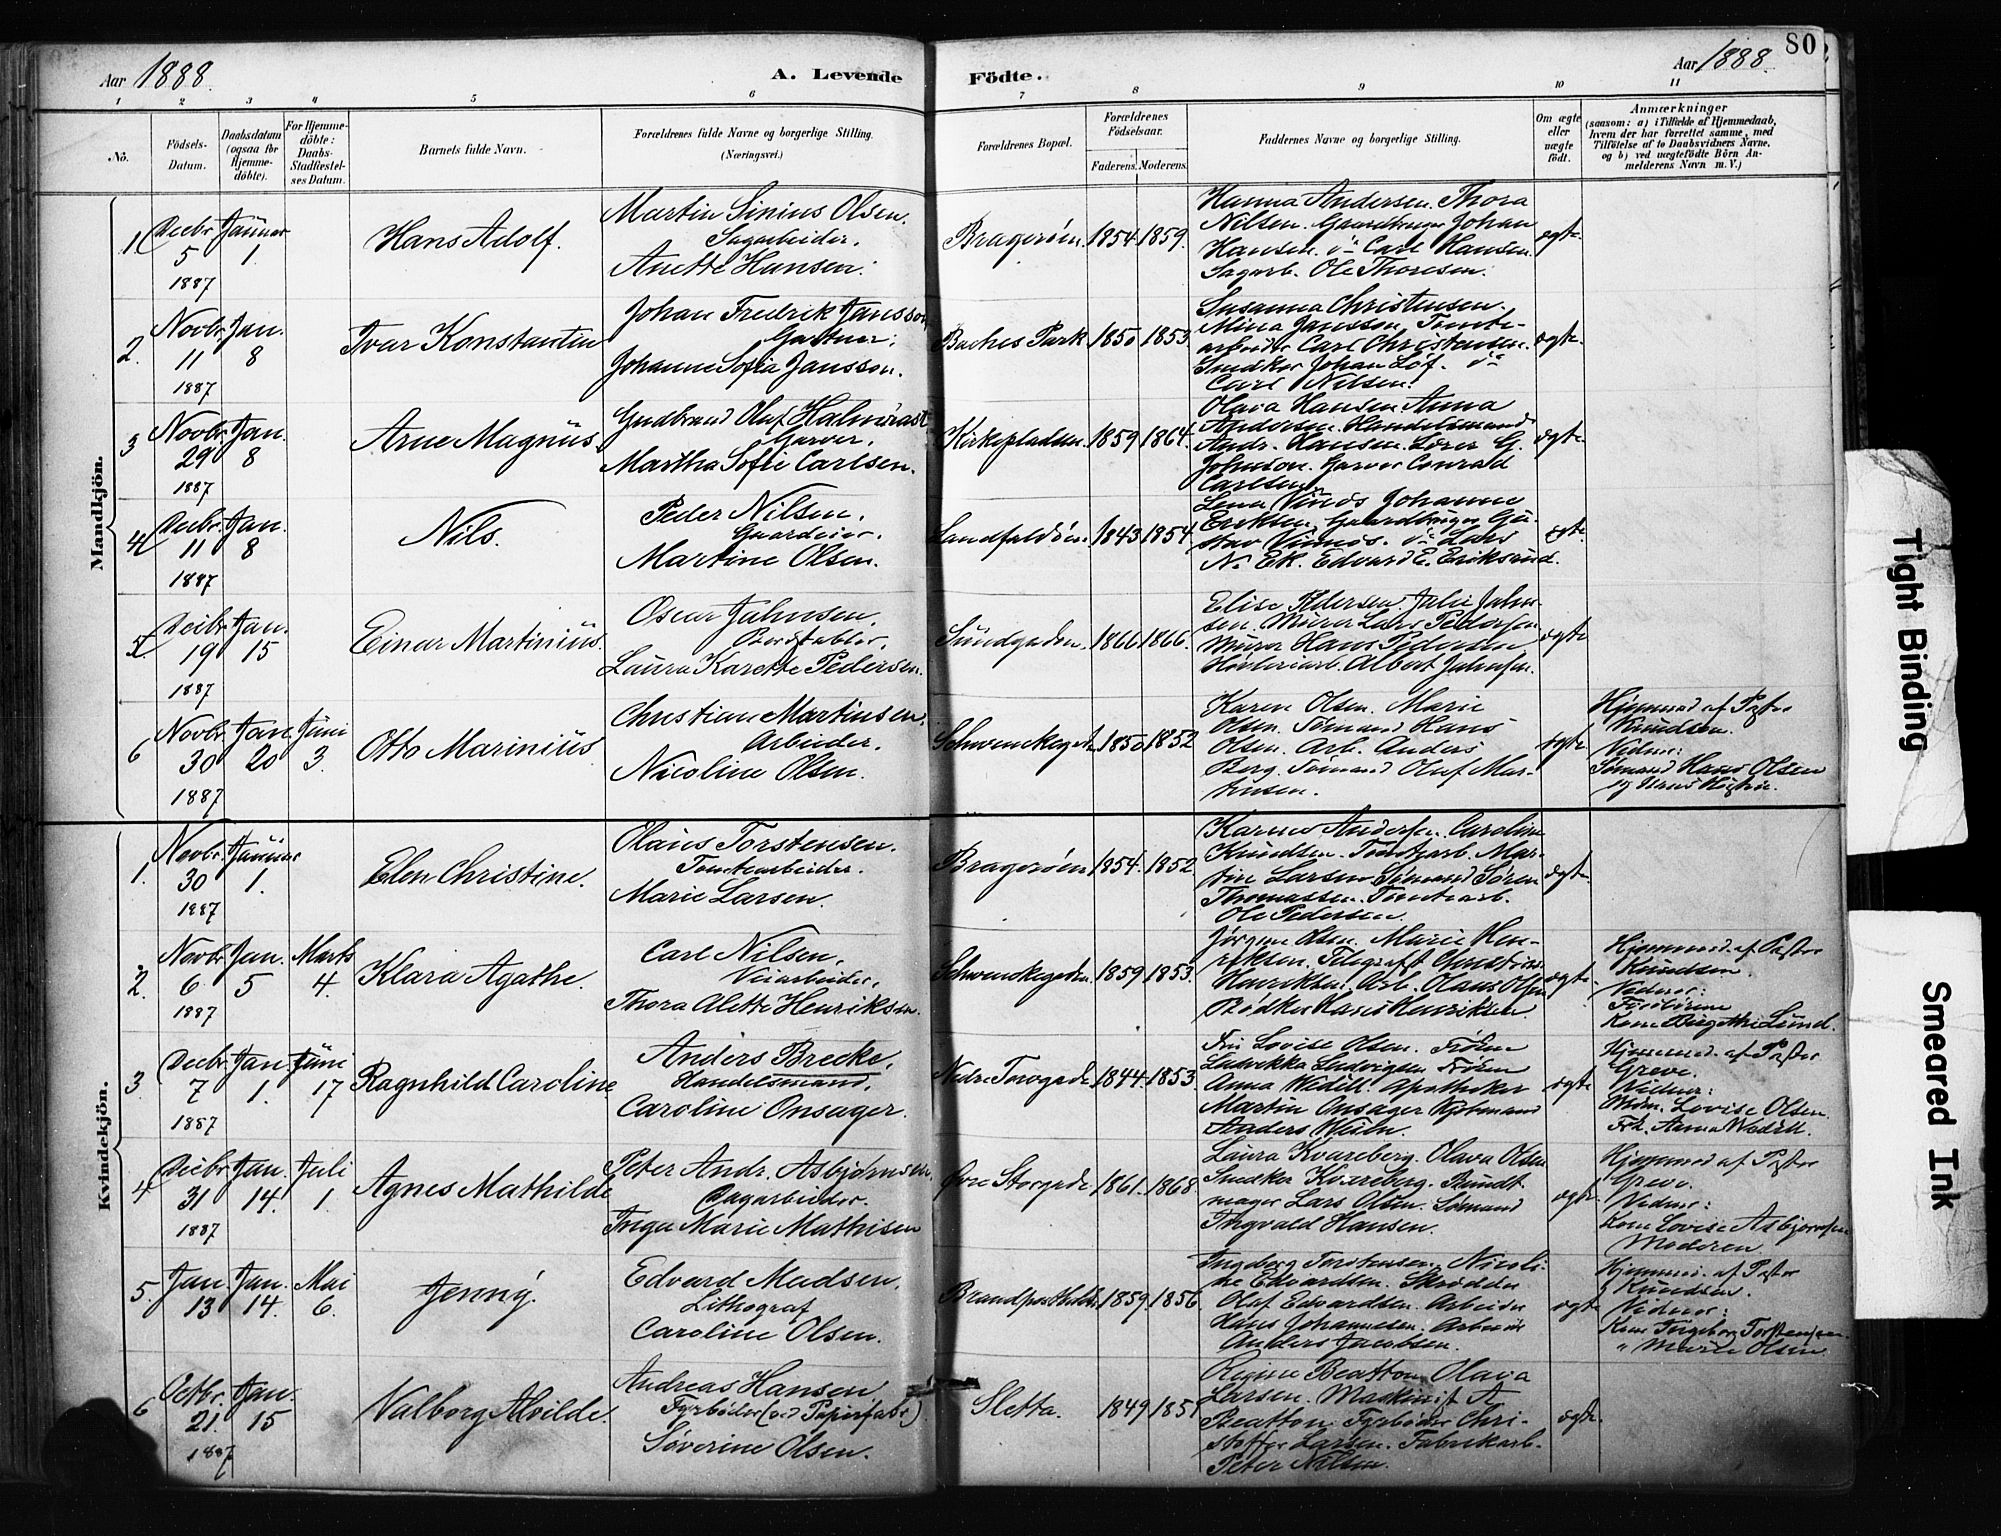 Aar 1888. A. Levende Födte. Aar 1888. 80
1 2 3 4 5 6 7 8 9 10 11
No. Födsels-Datum. Daabsdatum (ogsaa for Hjemme-döbte). For Hjemme-döbte: Daabs-Stadfæstel-ses Datum. Barnets fulde Navn. Forældrenes fulde Navne og borgerlige Stilling. (Næringsvei.) Forældrenes Bopæl. Forældrenes Födselsaar. Faderens. Moderens. Faddernes Navne og borgerlige Stilling. Om ægte eller uægte födt. Anmærkninger
(saasom: a) i Tilfælde af Hjemmedaab,
hvem der har forrettet samme, med
Tilföielse af to Daabsvidners Navne,
og b) ved uægtefödte Börn An-
melderens Navn m. V.)
Mandkjön.
1. Decbr. 5 1887 Januar 1. Hans Adolf. Martin Sinius Olsen.
Sagarbeider.
Anette Hansen.
Bragerøen 1854. 1859.
Hanna Andersen. Thora
Nilsen. Gaardbruger Johan
Hansen. do Carl Hansen.
Sagarb. Ole Thoresen.
ægte.
2. Novbr. 11 1887 Jan. 8 Ivar Konstantin Johan Fredrik Jansson
Gartner.
Johanne Sofia Jansson.
Baches Park 1850 1853
Susanna Christensen.
Mina Jansson. Tomte-
arbeider Carl Christensen.
Snedker Johan Löf. do
Carl Nilsen.
ægte.
3 Novbr. 29 1887 Jan. 8 Arne Magnus Gudbrand Oluf Halmrast
Garver.
Martha Sofie Carlsen.
Kirkepladsen. 1859 1864.
Olava Hansen Anna
Andersen. Handelsmand
Andr. Hansen. Lærer G.
Johnson. Garver Conrad
Carlsen.
ægte.
4 Decbr. 11 1887 Jan. 8 Nils. Peder Nilsen.
Gaardeier.
Martine Olsen.
Landfaldøen. 1843 1854.
Johanne
Eriksen. Gaardbruger Gu-
stav do Lars
N. Ek. Edvard E. Eriksrud.
ægte.
5. Decbr. 19 1887 Jan. 15 Einar Martinius. Oscar Jahnsen.
Bordstabler.
Laura Karette Pedersen.
Sundgaden. 1866 1866.
Elise Pedersen. Julie Jahn-
sen. Murer Lars Pedersen
Murer Hans Pedersen
Høvleriarb. Albert Jahnsen.
ægte
6 Novbr. 30 1887 Jan. 20 Juni 3. Otto Marinius Christian Martinsen.
Arbeider.
Nicoline Olsen.
Schwenckegd. 1850 1852
Karen Olsen. Marie
Olsen. Sømand Hans
Olsen. Arb. Anders
Berg. Sømand Oluf Mar-
tinsen.
ægte
Hjemmed. af Pastor
Knudsen.
Vidner:
Sømand Hans Olsen
Kvindekjön.
1. Novbr. 30 1887 Januar 1. Elen Christine. Olaus Torstensen.
Tomtearbeider.
Marie Larsen.
Bragerøen 1854. 1852
Karen Andersen. Caroline
Knudsen. Tomtearb. Mar-
tin Larsen Sømand Søren
Thomassen. Tomtearb.
Ole Pedersen.
ægte.
2. Novbr. 6 1887 Jan. 5 Marts 4. Klara Agathe. Carl Nilsen.
Veiarbeider.
Thora Alette Henriksen.
Schwenckegaden 1859 1853.
Jørgine Olsen. Marie Hen-
riksen. Telegrafist Christian
Henriksen. Arb. Olaus Olsen
Bødker Hans Henriksen
ægte.
Hjemmed. af Pastor
Knudsen.
Vidner:
Kone Birgithe Lund.
3. Decbr. 7 1887 Jan. 1. Juni 17 Ragnhild Caroline Anders Brecke.
Handelsmand.
Caroline Onsager.
Nedre Torvgade 1844. 1853.
Fru Lovise Olsen. Frøken
Ludvikka Ludvigsen Frøken
Anna Wedell Apotheker
Martin Onsager Kjøbmand
Anders
ægte
Hjemmed. af Pastor
Greve.
Vidner:
Lovise Olsen.
Frk. Anna Wedell.
4 Decbr. 31 1887 Jan. 14. Juli 1. Agnes Mathilde Peter Andr. Asbjørnsen.
Sagarbeider.
Inga Marie Mathisen
Øvre Storgade 1861. 1868.
Laura Kvareberg. Olava Olsen
Snedker Kvareberg. Bundt-
mager Lars Olsen. Sømand
Ingvald Hansen.
ægte.
Hjemmed af Pastor
Greve.
Vidner:
Kone Lovise Asbjørnsen
Moderen.
5. Jan. 13 Jan. 14. Mai 6. Jenny. Edvard Madsen.
Lithograf
Caroline Olsen.
1859. 1856.
Ingeborg Torstensen. Nicoli-
ne Edvardsen. Skrædder
Oluf Edvardsen. Arbeider
Hans Johannesen. Arbeider
Anders Jacobsen.
ægte
Hjemmed. af Pastor
Knudsen.
Vidner:
Kone Ingeborg Torstensen.
" Marie Olsen
6 Octbr. 21. 1887 Jan. 15 Valborg Alvilde. Andreas Hansen
Fyrbøder (ved Papirfabr.)
Søverine Olsen.
Sletta. 1849 1851
Regine Beatton. Olava
Larsen. Maskinist A.
Beatton. Fyrbøder Chri-
stoffer Larsen. Fabrikarb.
Peter Nilsen.
ægte.
Tight Binding
Smeared Ink